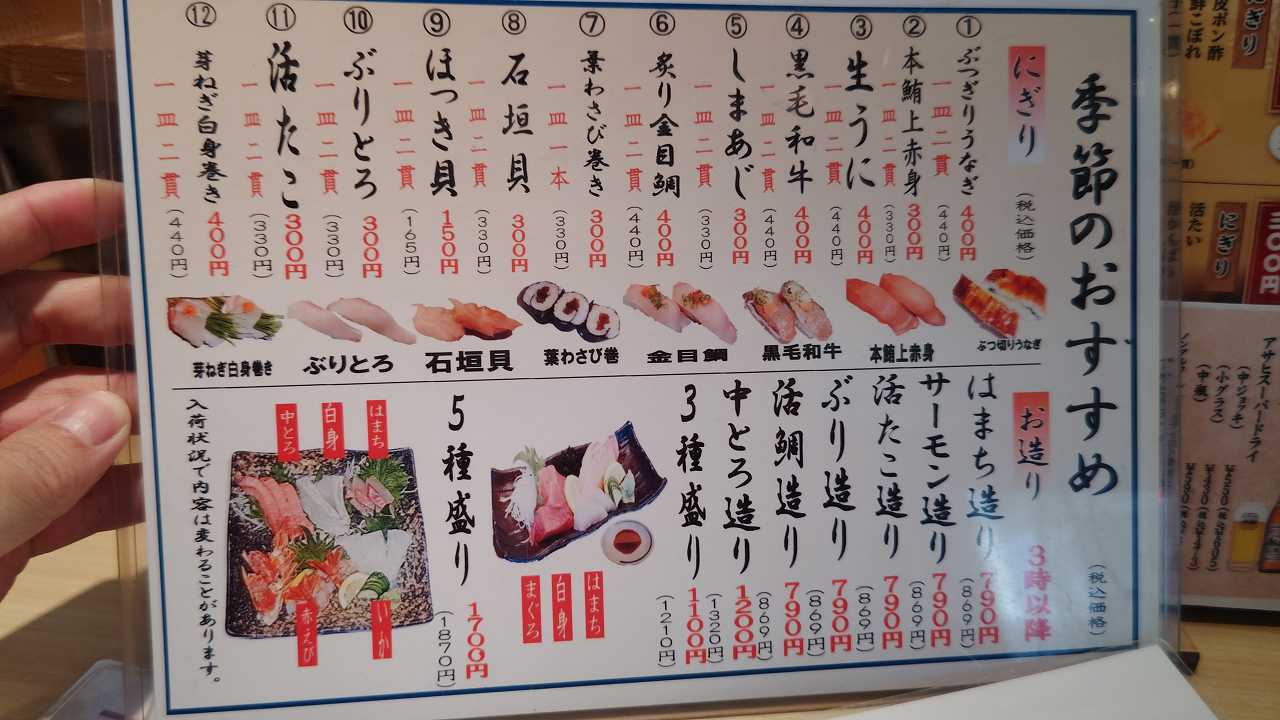 季節のおすすめ
(税込価格)
にぎり
(税込価格)
①ぶつぎりうなぎ
一皿二貫
400円
(440円)
②本鮪上赤身
一皿二貫
300円
(330円)
③生うに
一皿二貫
400円
(440円)
④黒毛和牛
一皿二貫
400円
(440円)
⑤しまあじ
一皿二貫
300円
(330円)
⑥炙り金目鯛
一皿二貫
400円
(440円)
⑦葉わさび巻き
一皿一本
300円
(330円)
⑧石垣貝
一皿二貫
300円
(330円)
⑨ほっき貝
一皿二貫
150円
(165円)
⑩ぶりとろ
一皿二貫
300円
(330円)
⑪活たこ
一皿二貫
300円
(330円)
⑫芽ねぎ白身巻き
一皿二貫
400円
(440円)
ぶつ切りうなぎ
本鮪上赤身
黒毛和牛
金目鯛
葉わさび巻
石垣貝
ぶりとろ
芽ねぎ白身巻き
お造り
3時以降
はまち造り
790円
(869円)
サーモン造り
790円
(869円)
活たこ造り
790円
(869円)
ぶり造り
790円
(869円)
活鯛造り
790円
(869円)
中とろ造り
1200円
(1320円)
3種盛り
1100円
(1210円)
はまち
白身
まぐろ
5種盛り
1700円
(1870円)
はまち
白身
中とろ
いか
赤えび
入荷状況で内容は変わることがあります。
にぎり
皮ポン酢
鮮こぼれ
にぎり
活たい
三〇〇円
アサヒスーパードライ
(中ジョッキ)
(小グラス)
(中瓶)